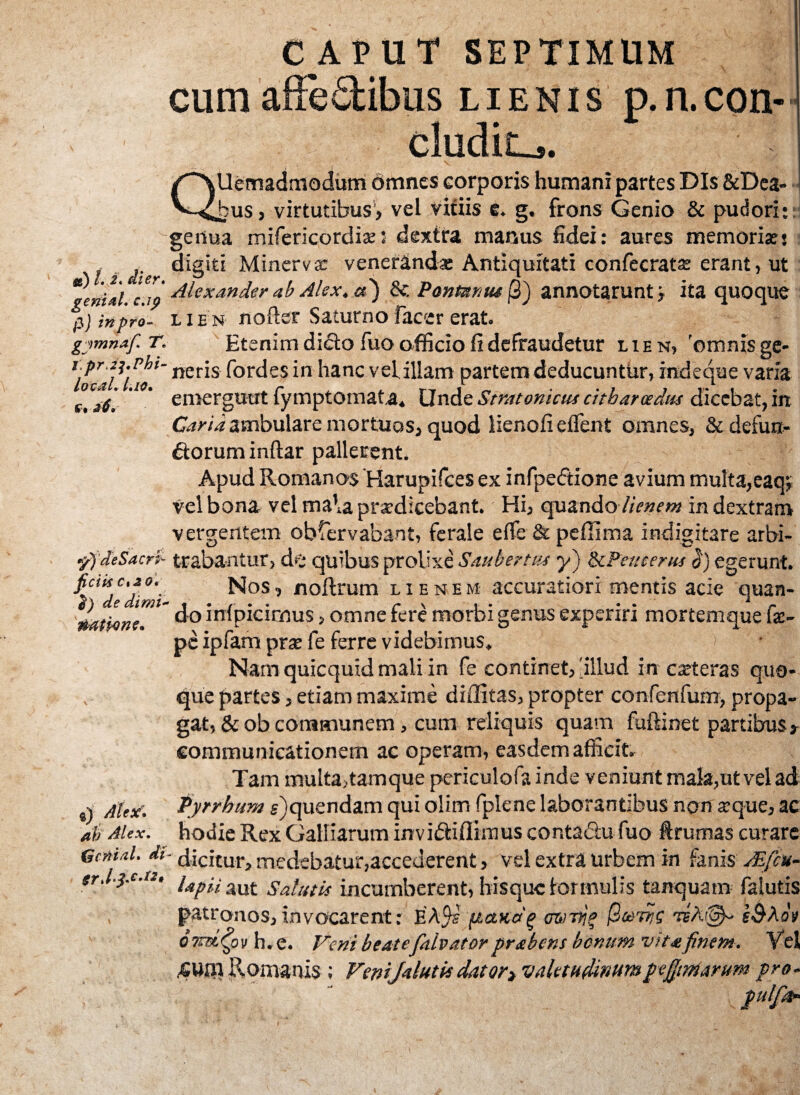 CAPUT SEPTIMUM
cum affectibus LIENIS p.n.con-
cludit.
QUemadmodum omnes corporis humani partes DIs &Dea-
bus, virtutibus, vel vitiis e. g. frons Genio & pudori:
genua misericordiæ: dextra manus fidei: aures memoriæ:
digiti Minervæ venerandæ Antiquitati consecratæ erant, ut
α) l. 2. dier.
genial. c.19
Alexander ab Alex. α) &. Pontanus β) annotarunt; ita quoque
β) in pro-
gymnas. T.
1.pr.23.Phi-
local. l.10.
c. 26.
LIEN noster Saturno sacer erat.
Etenim dicto suo officio si defraudetur LIEN, omnis ge-
neris sordes in hanc vel illam partem deducuntur, indeque varia
emergunt symptomata. Unde Stratonicus citharœdus dicebat, in
Cariâ ambulare mortuos, quod lienosi essent omnes, & defun-
ctorum instar pallerent.
Apud Romanos Harupisces ex inspectione avium multa,eaq;
vel bona vel mala prædicebant. Hi, quando lienem in dextram
vergentem observabant, ferale esse & pessima indigitare arbi-
γ) de Sacri-
ficiis c. 20.
δ) de divi-
natione.
trabantur, de quibus prolixè Saubertus γ) & Peucerus δ) egerunt.
Nos, nostrum LIENEM accuratiori mentis acie quan-
do inspicimus, omne fere morbi genus experiri mortemque sæ-
pè ipsam præ se ferre videbimus.
Nam quicquid mali in se continet, illud in cæteras quo-
que partes, etiam maximè dissitas, propter consensum, propa-
gat, & ob communem, cum reliquis quam sustinet partibus,
communicationem ac operam, easdem afficit.
Tam multa,tamque periculosa inde veniunt mala,ut vel ad
ε) Alex.
ab Alex.
Genial. di-
er.l.3.c.12.
Pyrrhum ε)quendam qui olim splene laborantibus non æque, ac
hodie Rex Galliarum invictissimus contactu suo strumas curare
dicitur, medebatur,accederent, vel extrà urbem in fanis Æscu-
lapii aut Salutis incumberent, hisque formulis tanquam salutis
patronos, invocarent:
h. e. Veni beate salvator præbens bonum vitæ finem. Vel
cum Romanis; Veni salutis dator, valetudinum pessimarum pro-
pulsa-